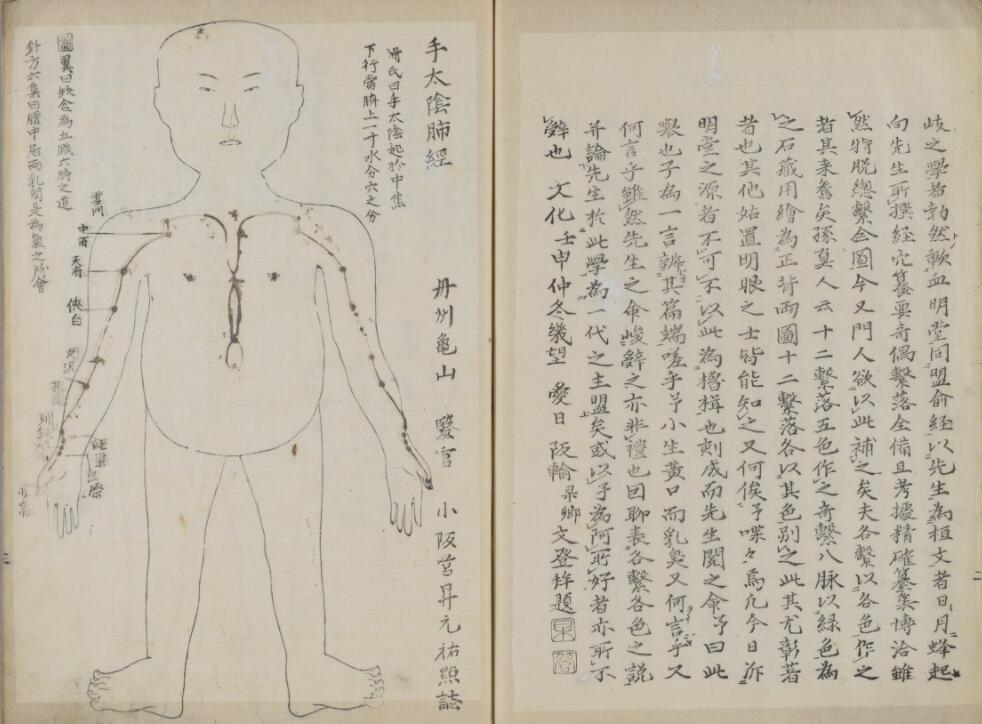 歧之學者勃然歃血明堂同盟俞経以先生為桓文者日月蜂起
向先生所撰経穴纂要奇偶繫落全備且考據精確纂集博洽雖
然特脱總繫全圖今又門人欲以此補之矣夫各繫以各色作之
者其来舊矣孫真人云十二繫落五色作之奇繫八脉以緑色為
之石藏用繪為正背兩圖十二繫落各以其色別之此其尤彰著
者也其他姑置明眼之士皆能知之又何俟予喋々焉凢今日泝
明堂之源者不可不以此為櫓楫也刻成而先生閱之命予曰此
舉也子為一言辨其篇端嗟乎予小生黄口而乳臭又何言乎又
何言乎雖然先生之命峻辭之亦非禮也因聊表各繫各色之説
并論先生於此學為一代之主盟矣或以予為阿所好者亦所不
辭也 文化壬申仲冬幾望 愛日 阪輪 杲卿 文登拜題
手太陰肺經
滑氏曰手太陰起於中焦
下行當臍上一寸水分穴之分
丹州龜山 醫官 小阪営昇元祐照誌
圖翼曰缺盆為五臓六腑之道
針方六集曰膻中居兩乳間是為氣之所會
雲門
中府
天府
俠白
尺沢
孔最
列缺
経渠
魚際